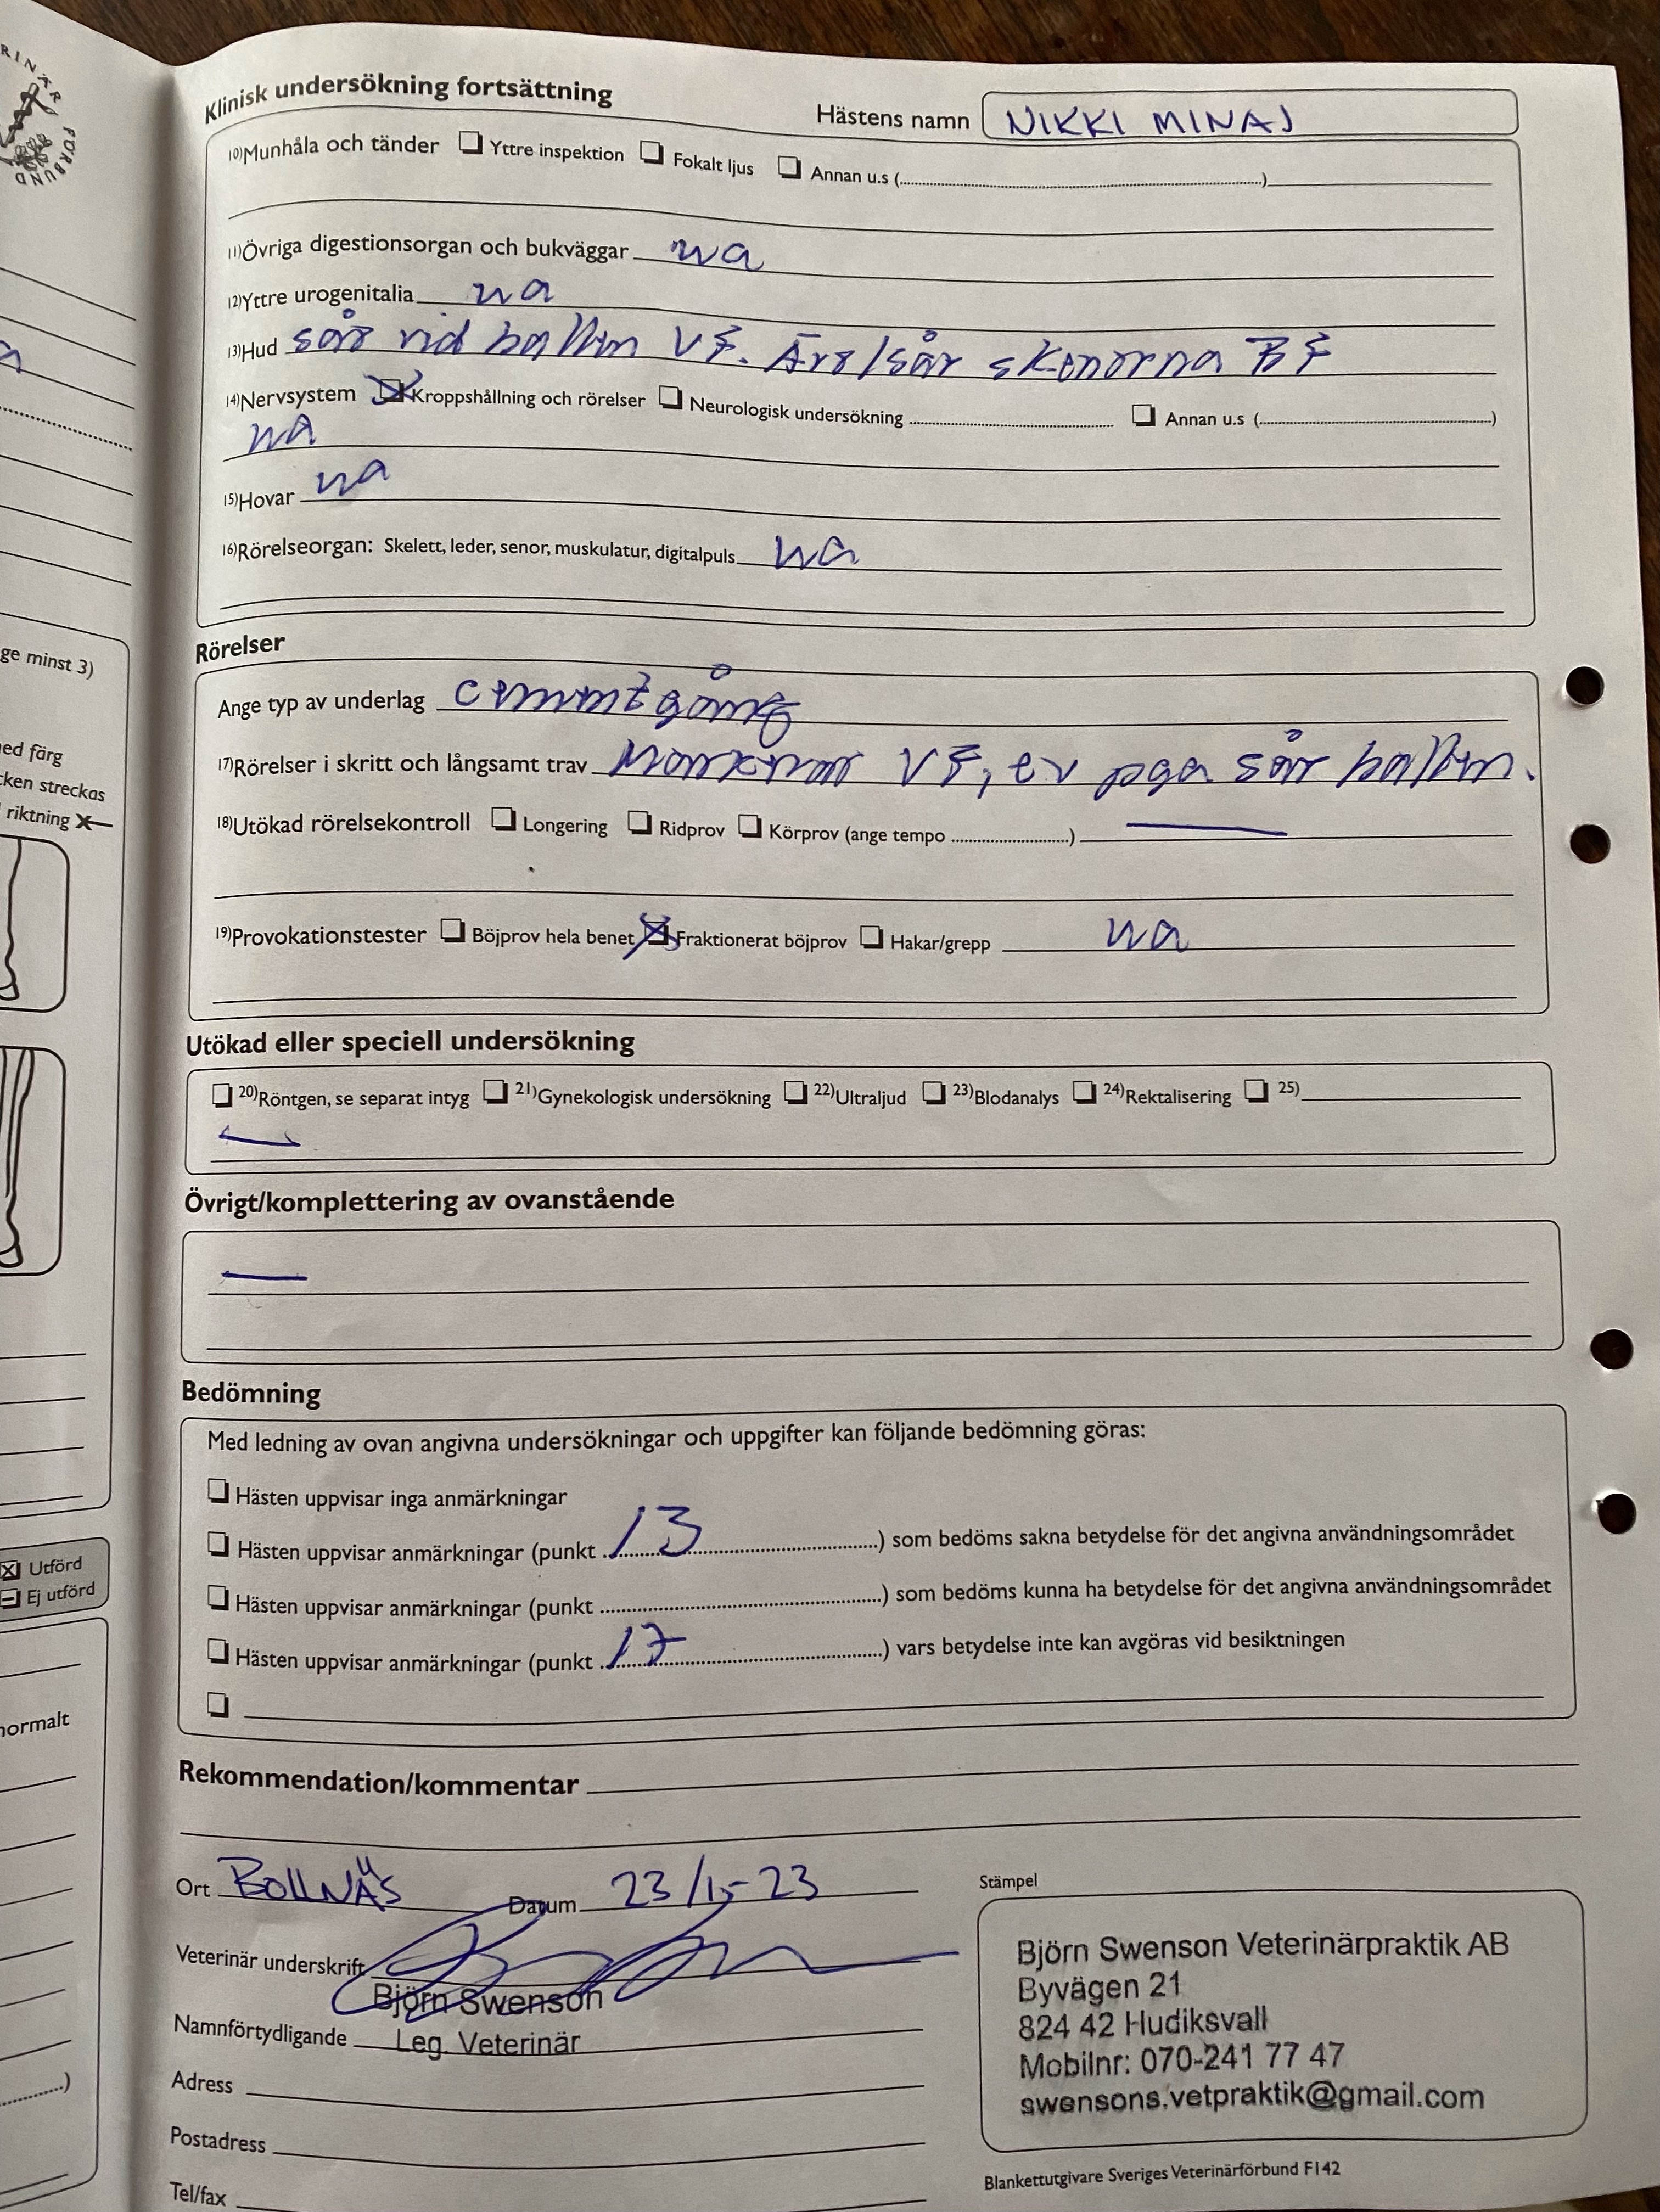 Klinisk undersökning fortsättning
Hästens namn NIKKI MINAJ
10)Munhåla och tänder Yttre inspektion Fokalt ljus Annan u.s (..............)
11)Övriga digestionsorgan och bukväggar ua
12)Yttre urogenitalia ua
13)Hud sår vid ballen VF. Ärr/sår skenorna BF
14)Nervsystem Kroppshållning och rörelser Neurologisk undersökning .............. Annan u.s (..............)
ua
15)Hovar ua
16)Rörelseorgan: Skelett, leder, senor, muskulatur, digitalpuls ua
Rörelser
Ange typ av underlag cementgång
17)Rörelser i skritt och långsamt trav Markerar VF, ev pga sår ballen.
18)Utökad rörelsekontroll Longering Ridprov Körprov (ange tempo ..............)
19)Provokationstester Böjprov hela benet Fraktionerat böjprov Hakar/grepp ua
Utökad eller speciell undersökning
20)Röntgen, se separat intyg 21)Gynekologisk undersökning 22)Ultraljud 23)Blodanalys 24)Rektalisering 25)
Övrigt/komplettering av ovanstående
Bedömning
Med ledning av ovan angivna undersökningar och uppgifter kan följande bedömning göras:
Hästen uppvisar inga anmärkningar
Hästen uppvisar anmärkningar (punkt 13) som bedöms sakna betydelse för det angivna användningsområdet
Hästen uppvisar anmärkningar (punkt ..............) som bedöms kunna ha betydelse för det angivna användningsområdet
Hästen uppvisar anmärkningar (punkt 17) vars betydelse inte kan avgöras vid besiktningen
Rekommendation/kommentar
Ort BOLLNÄS Datum 23/ -23
Veterinär underskrift
Björn Swenson
Namnförtydligande Leg. Veterinär
Adress
Postadress
Tel/fax
Stämpel
Björn Swenson Veterinärpraktik AB
Byvägen 21
824 42 Hudiksvall
Mobilnr: 070-241 77 47
swensons.vetpraktik@gmail.com
Blankettutgivare Sveriges Veterinärförbund F142
RINÄR FÖRBUND
ge minst 3)
ed färg
cken streckas
riktning X
Utförd
Ej utförd
normalt
..............)